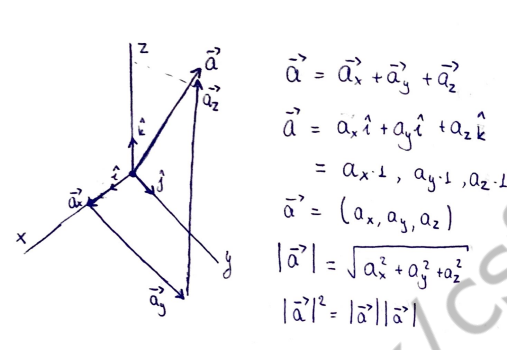 z
a⃗
a⃗z
k̂
î
ĵ
a⃗x
x
y
a⃗y
a⃗ = a⃗x + a⃗y + a⃗z
a⃗ = axî + ayî + azk̂
= ax·1 , ay·1 , az·1
a⃗ = (ax, ay, az)
|a⃗| = √(ax² + ay² + az²)
|a⃗|² = |a⃗||a⃗|